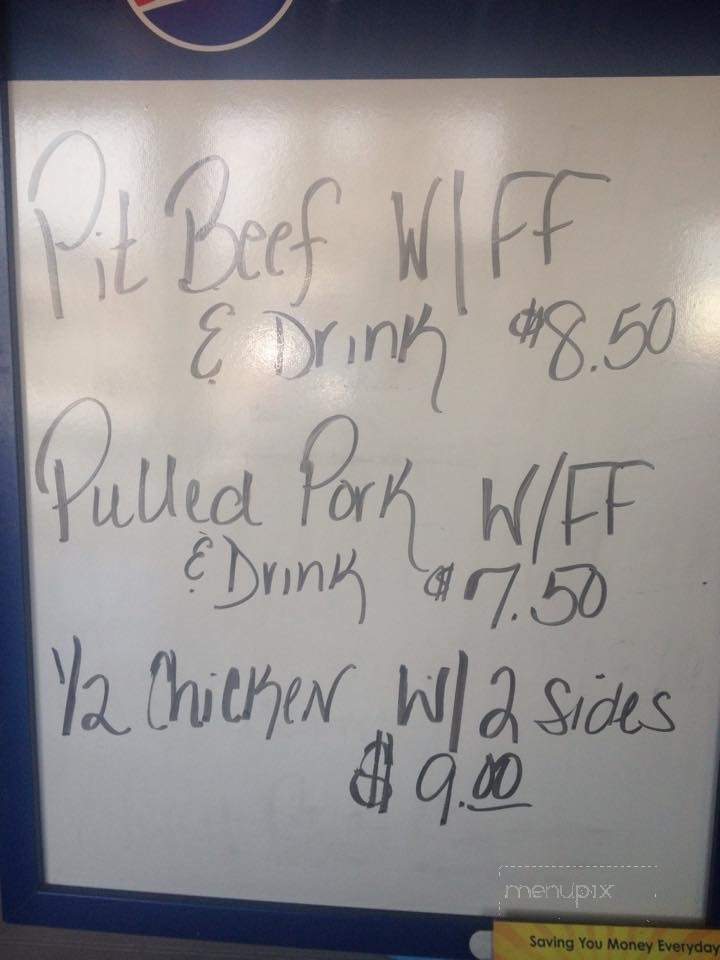 Pit Beef W/FF
& Drink $8.50
Pulled Pork W/FF
& Drink $7.50
1/2 Chicken W/2 Sides
$9.00
menupix
Saving You Money Everyday